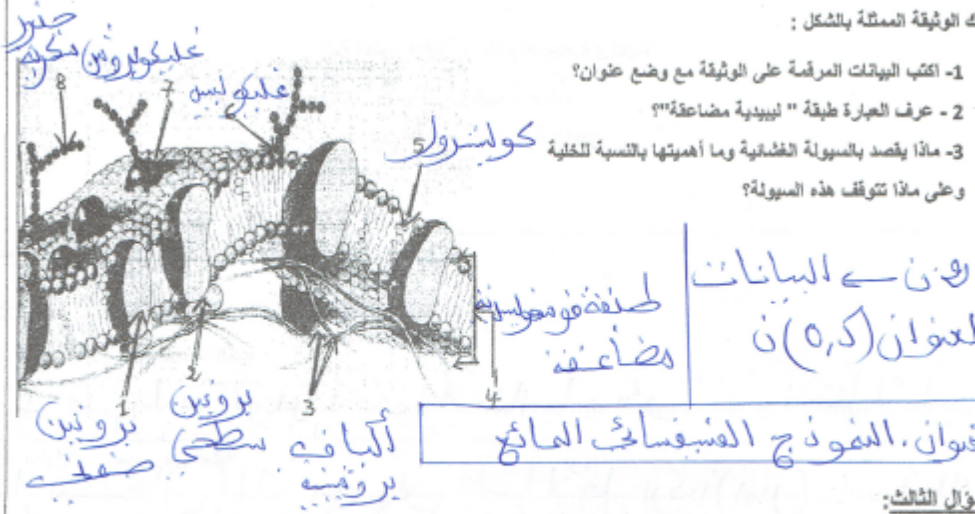 ك الوثيقة الممثلة بالشكل :
1- اكتب البيانات المرقمة على الوثيقة مع وضع عنوان؟
2 - عرف العبارة طبقة " ليبيدية مضاعفة"؟
3- ماذا يقصد بالسيولة الغشائية وما أهميتها بالنسبة للخلية
وعلى ماذا تتوقف هذه السيولة؟
جذر
غليكوبروتين سكرية
غليكوليبيد
8
7
6
كولسترول
5
طبقة فوسفوليبيدية
مضاعفة
البيانات
العنوان (0,5) ن
1
2
3
4
بروتين
ضمني
بروتين
سطحي
ألياف
بروتينية
عنوان. النموذج الفسيفسائي المائع
ؤال الثالث: